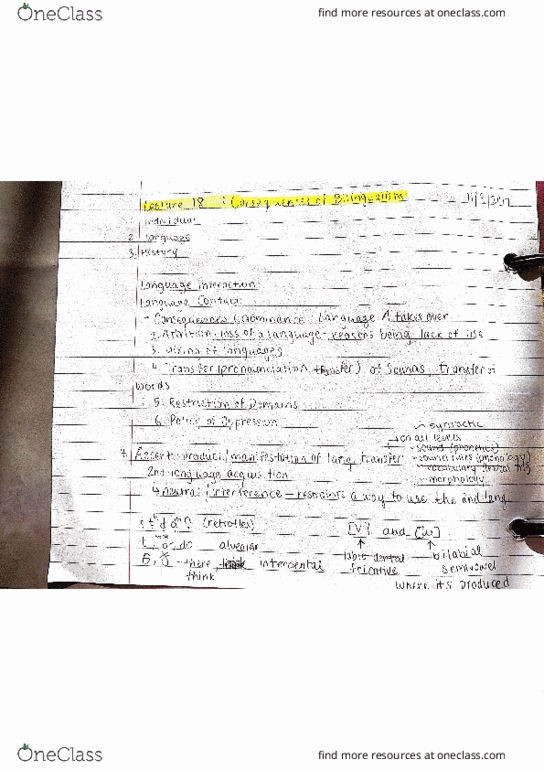 OneClass
find more resources at oneclass.com
Lecture 18 : Consequences of Bilingualism
1. individual
2. language
3. History
Language interaction
Language Contact
- Consequences 1. dominance : Language A takes over
2. Attrition : loss of a language - reasons being lack of use
3. Mixing of languages
4. Transfer (pronounciation transfer) of sounds, transfer of
words
5. Restriction of Domains
6. Policy of
- syntactic
on all levels
- sound (phonetics)
* Accent: product / manifestation of lang. transfer
- sound rules (phonology)
2nd language acquisition
- vocabulary
- morphology
interference - restraints a way to use the 2nd lang
(retroflex)
[v] and [w]
alveolar
labio-dental
bilabial
there, interdental
fricative
semivowel
think
where it's produced
OneClass
find more resources at oneclass.com